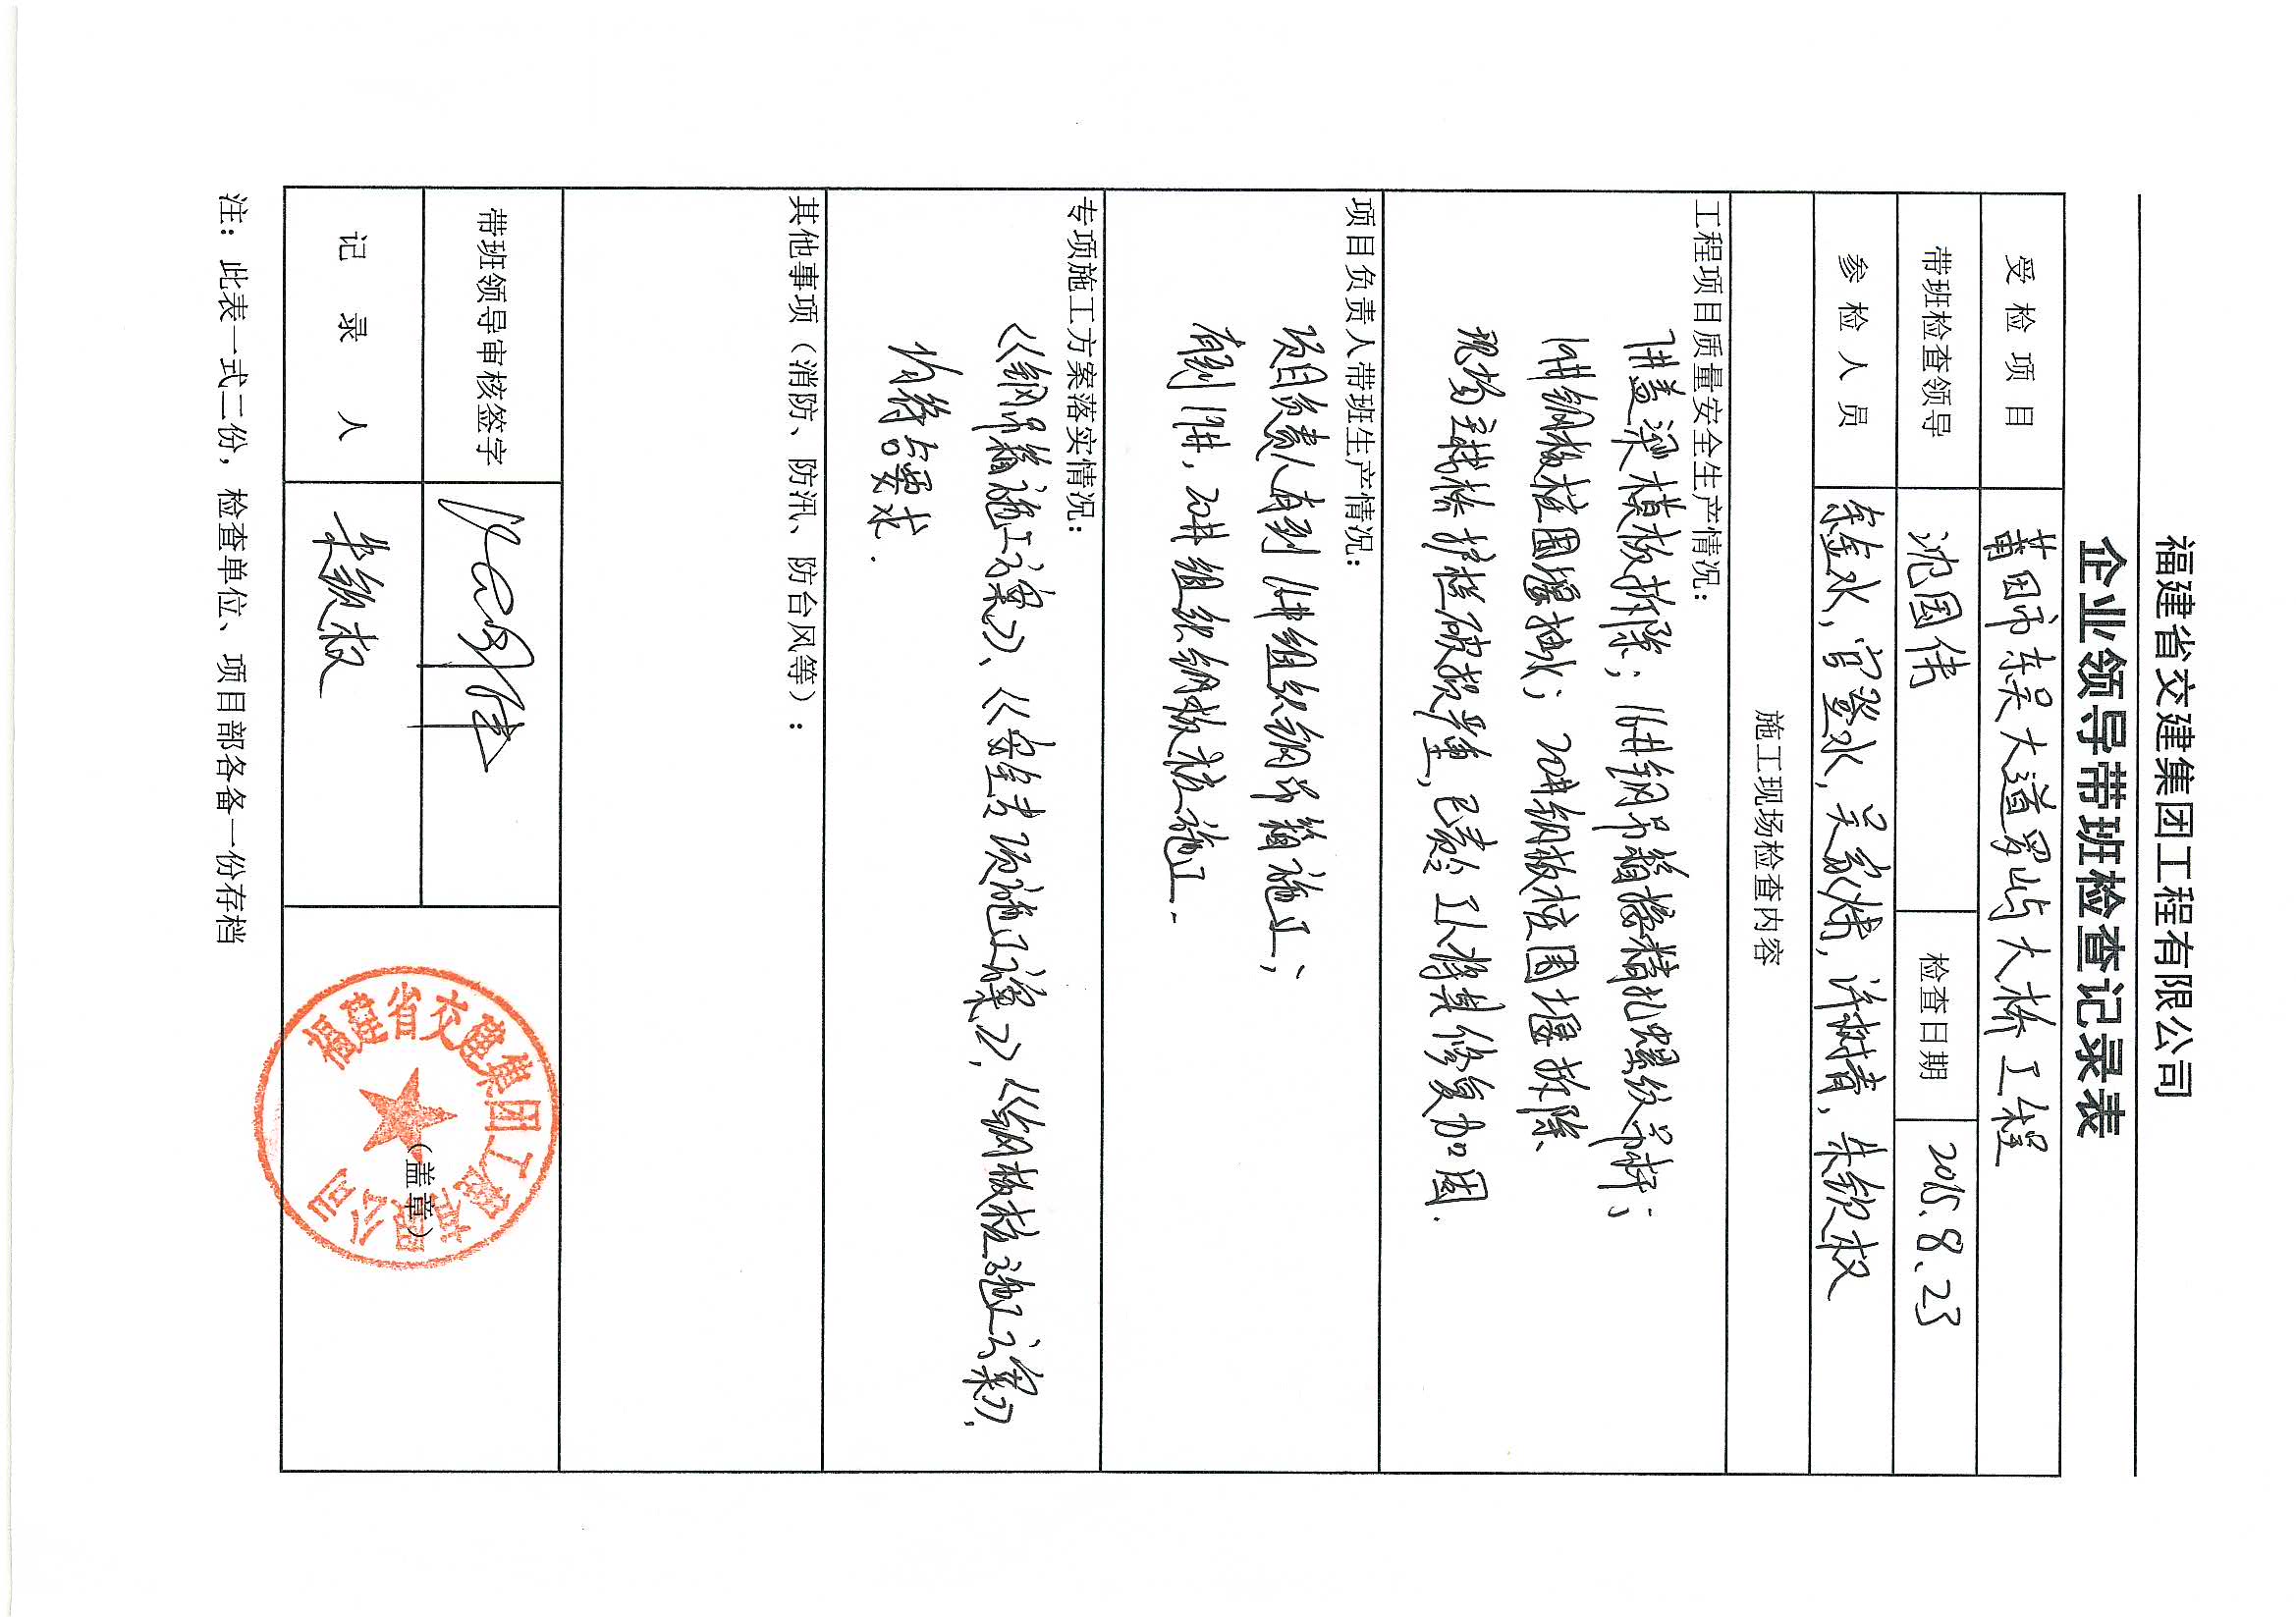 福建省交建集团工程有限公司
企业领导带班检查记录表
受检项目 莆田市东吴大道 大桥工程
带班检查领导 沈国伟 检查日期 2015.8.23
参检人员 余金水，官登水，吴家 ，许树青，朱钦权
施工现场检查内容
工程项目质量安全生产情况：
盖梁模板拆除；16#钢吊箱 精扎螺纹吊杆；
19#钢板桩围堰抽水；20#钢板桩围堰拆除、
现场主栈桥护栏破损严重，已 工人将其修复加固.
项目负责人带班生产情况：
项目负责人有到16#组织钢吊箱施工；
有到19#，20#组织钢板桩施工.
专项施工方案落实情况：
《钢吊箱施工方案》、《安全专项施工方案》，《钢板桩施工方案》，
均符合要求.
其他事项（消防、防汛、防台风等）：
带班领导审核签字
记录人 朱钦权
福建省交建集团工程有限公司
（盖章）
注：此表一式二份，检查单位、项目部各备一份存档